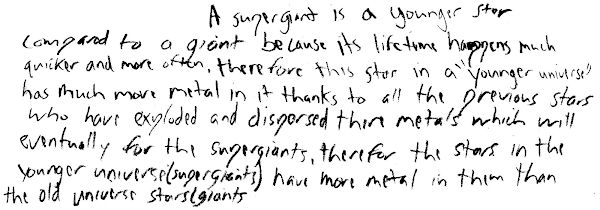 A supergiant is a younger star
compared to a giant because its lifetime happens much
quicker and more often, therefore this star in a "younger universe"
has much more metal in it thanks to all the previous stars
who have exploded and dispersed there metals which will
eventually for the supergiants, therefor the stars in the
younger universe (supergiants) have more metal in them than
the old universe stars (giants